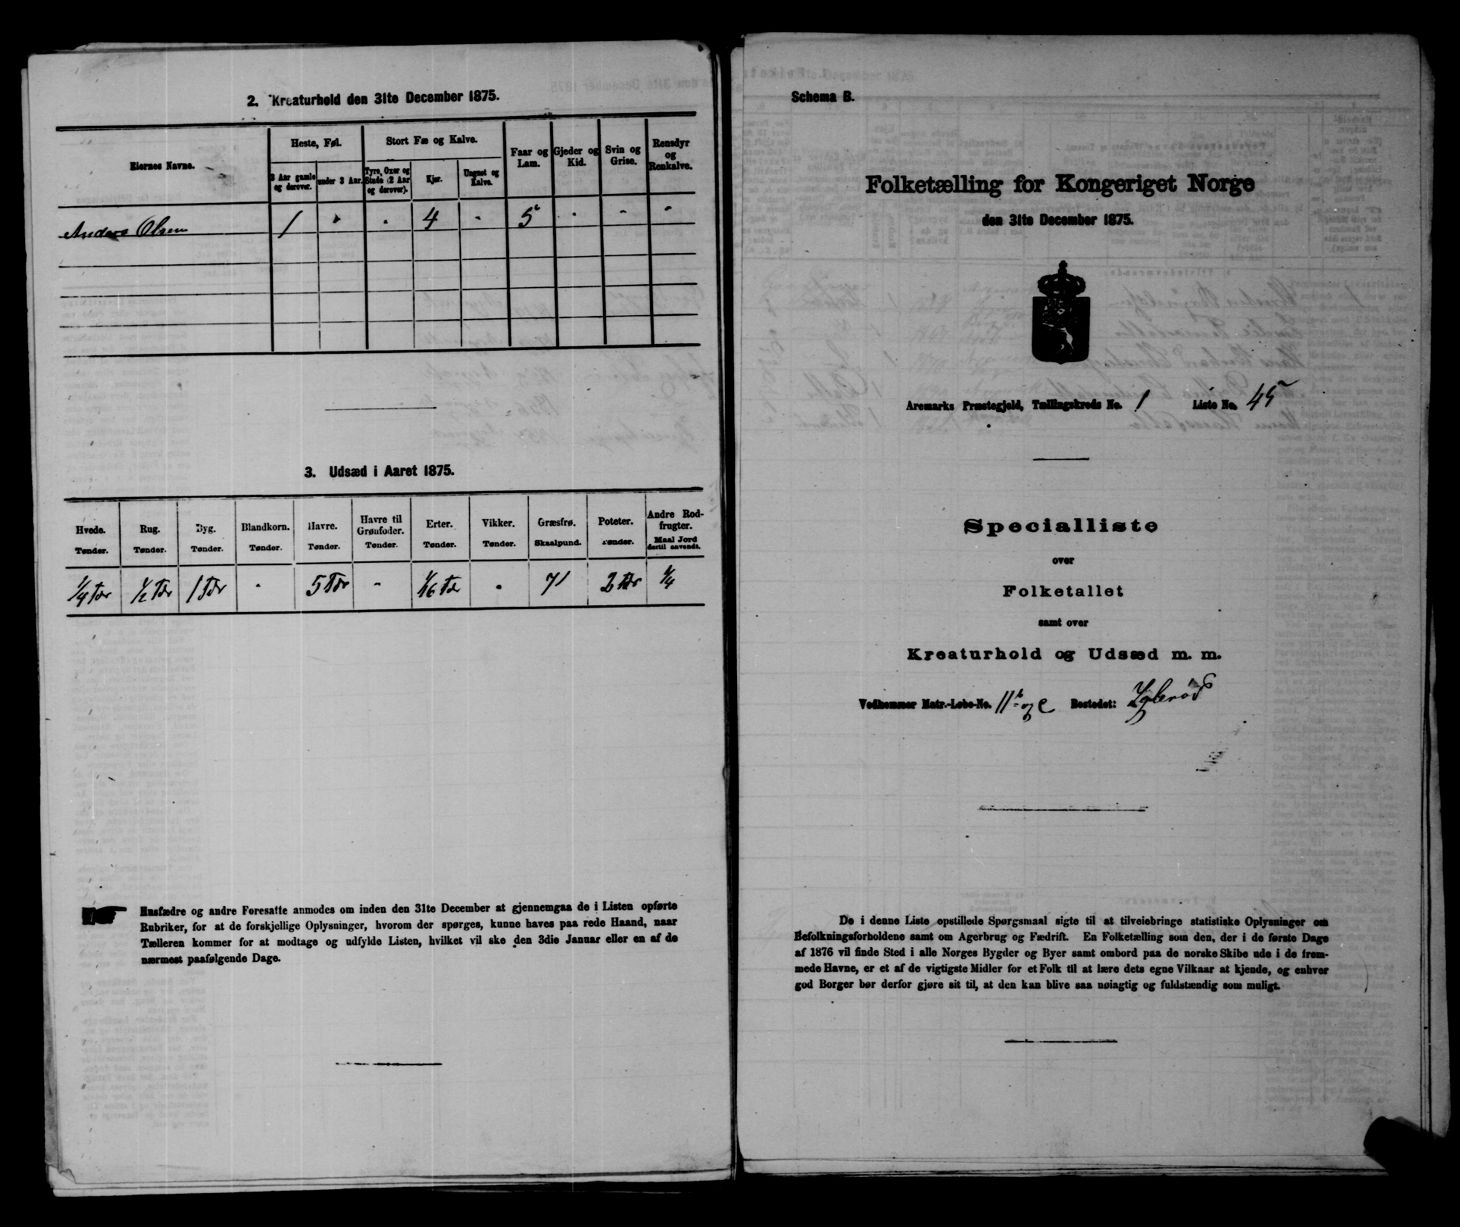 2. Kreaturhold den 31te December 1875.
Eiernes Navne.
Heste, Føl.
Stort Fæ og Kalve.
Faar og Lam.
Gjeder og Kid.
Svin og Grise.
Rensdyr og Renkalve.
3 Aar gamle og derover.
under 3 Aar.
Tyre, Oxer og Stude (2 Aar og derover).
Kjør.
Ungnøt og Kalve.
Anders Olsen 1 - - 4 - 5 - - -
3. Udsæd i Aaret 1875.
Hvede. Rug. Byg. Blandkorn. Havre. Havre til Grønfoder. Erter. Vikker. Græsfrø. Poteter. Andre Rodfrugter.
Tønder. Tønder. Tønder. Tønder. Tønder. Tønder. Tønder. Tønder. Skaalpund. Tønder. Maal Jord dertil anvendt.
1/4 Tdr 1/2 Tdr 1 Tdr - 5 Tdr - 1/6 Td - 71 2 Tdr 1/4
Husfædre og andre Foresatte anmodes om inden den 31te December at gjennemgaa de i Listen opførte
Rubriker, for at de forskjellige Oplysninger, hvorom der spørges, kunne haves paa rede Haand, naar
Tælleren kommer for at modtage og udfylde Listen, hvilket vil ske den 3die Januar eller en af de
nærmest paafølgende Dage.
Schema B.
Folketælling for Kongeriget Norge
den 31te December 1875.
Aremarks Præstegjeld, Tællingskreds No. 1 Liste No. 45
Specialliste
over
Folketallet
samt over
Kreaturhold og Udsæd m. m.
Vedkommer Matr.-Løbe-No. 11b og c Bostedet:
De i denne Liste opstillede Spørgsmaal sigte til at tilveiebringe statistiske Oplysninger om
Befolkningsforholdene samt om Agerbrug og Fædrift. En Folketælling som den, der i de første Dage
af 1876 vil finde Sted i alle Norges Bygder og Byer samt ombord paa de norske Skibe ude i de fremmede
Havne, er et af de vigtigste Midler for et Folk til at lære dets egne Vilkaar at kjende, og enhver
god Borger bør derfor gjøre sit til, at den kan blive saa nøiagtig og fuldstændig som muligt.